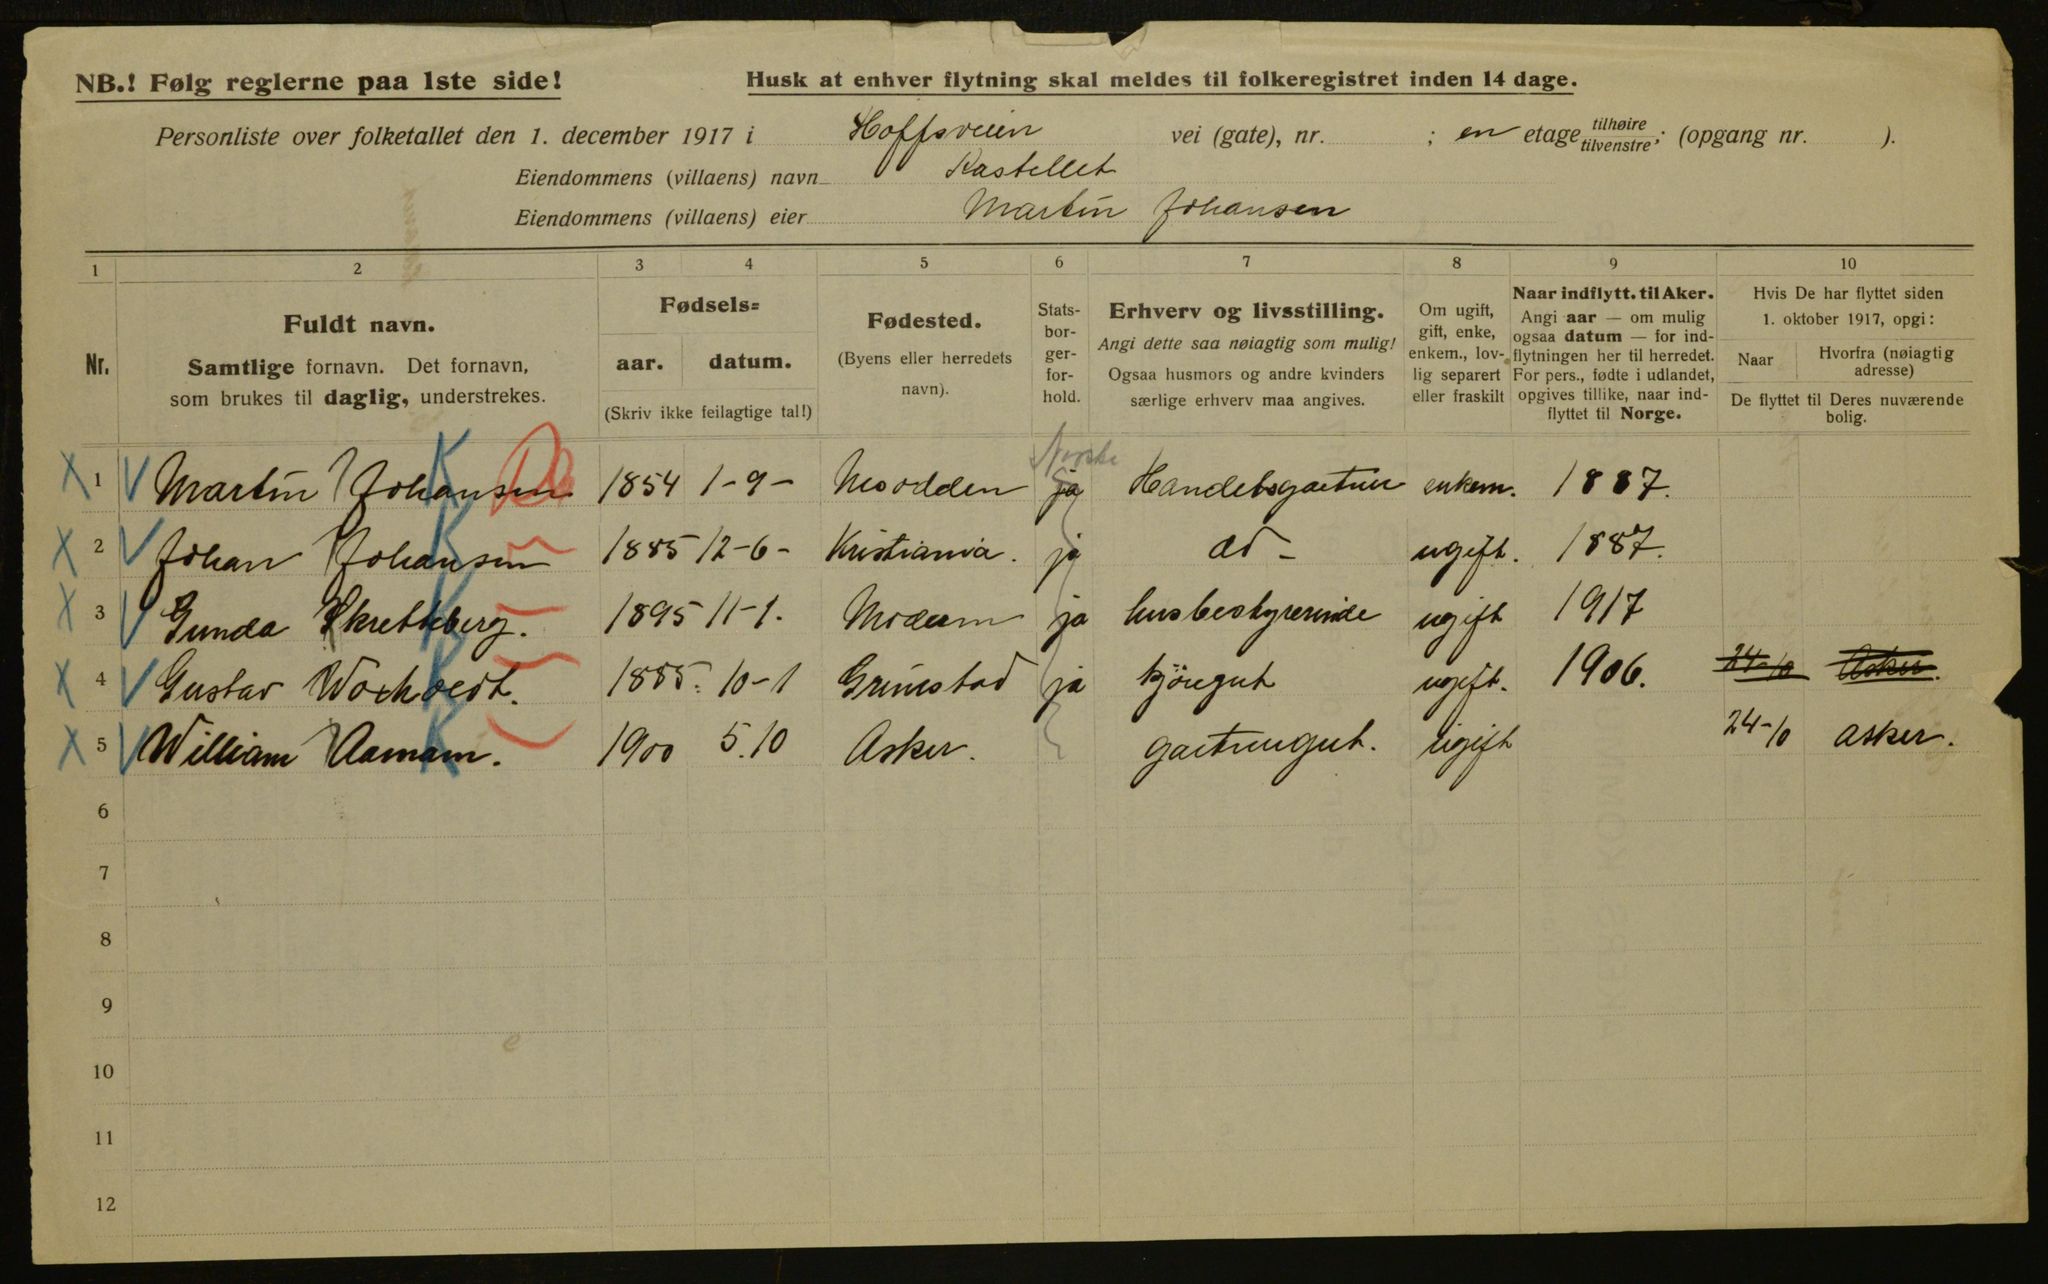 NB.! Følg reglerne paa 1ste side!
Husk at enhver flytning skal meldes til folkeregistret inden 14 dage.
Personliste over folketallet den 1. december 1917 i Hoffsveien vei (gate), nr. ; en etage tilhøire tilvenstre; (opgang nr. ).
Eiendommens (villaens) navn Kastellet
Eiendommens (villaens) eier Martin Johansen
1 2 3 4 5 6 7 8 9 10
Nr.
Fuldt navn.
Samtlige fornavn. Det fornavn,
som brukes til daglig, understrekes.
Fødsels=
aar. datum.
(Skriv ikke feilagtige tal!)
Fødested.
(Byens eller herredets
navn).
Stats-
bor-
ger-
for-
hold.
Erhverv og livsstilling.
Angi dette saa nøiagtig som mulig!
Ogsaa husmors og andre kvinders
særlige erhverv maa angives.
Om ugift,
gift, enke,
enkem., lov-
lig separert
eller fraskilt
Naar indflytt. til Aker.
Angi aar — om mulig
ogsaa datum — for ind-
flytningen her til herredet.
For pers., fødte i udlandet,
opgives tillike, naar ind-
flyttet til Norge.
Hvis De har flyttet siden
1. oktober 1917, opgi:
Naar Hvorfra (nøiagtig
adresse)
De flyttet til Deres nuværende
bolig.
Norske
1 Martin Johansen 1854 1-9- Nesodden ja Handelsgartner enkem. 1887.
2 Johan Johansen 1885 12-6- Kristiania. ja do - ugift. 1887.
3 Gunda Skretteberg. 1895 11-1. Modum ja husbestyrerinde ugift 1917
4 Gustav 1885. 10-1 Grimstad ja kjöregut ugift. 1906. 24-10 Asker.
5 William Aamam. 1900 5.10 Asker. gartnergut. ugift 24-10 Asker.
6
7
8
9
10
11
12